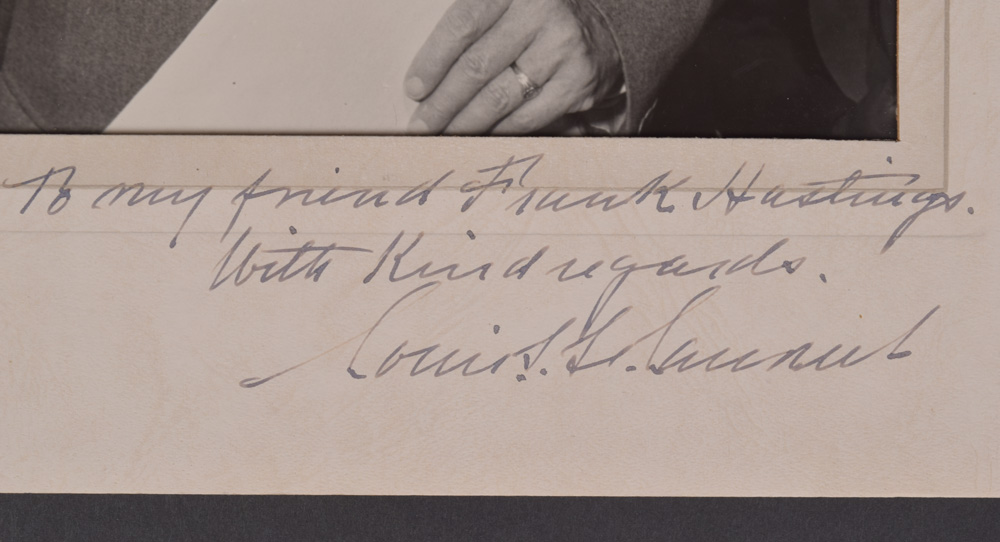 To my friend Frank Hastings.
With Kind regards.
Louis S. St. Laurent